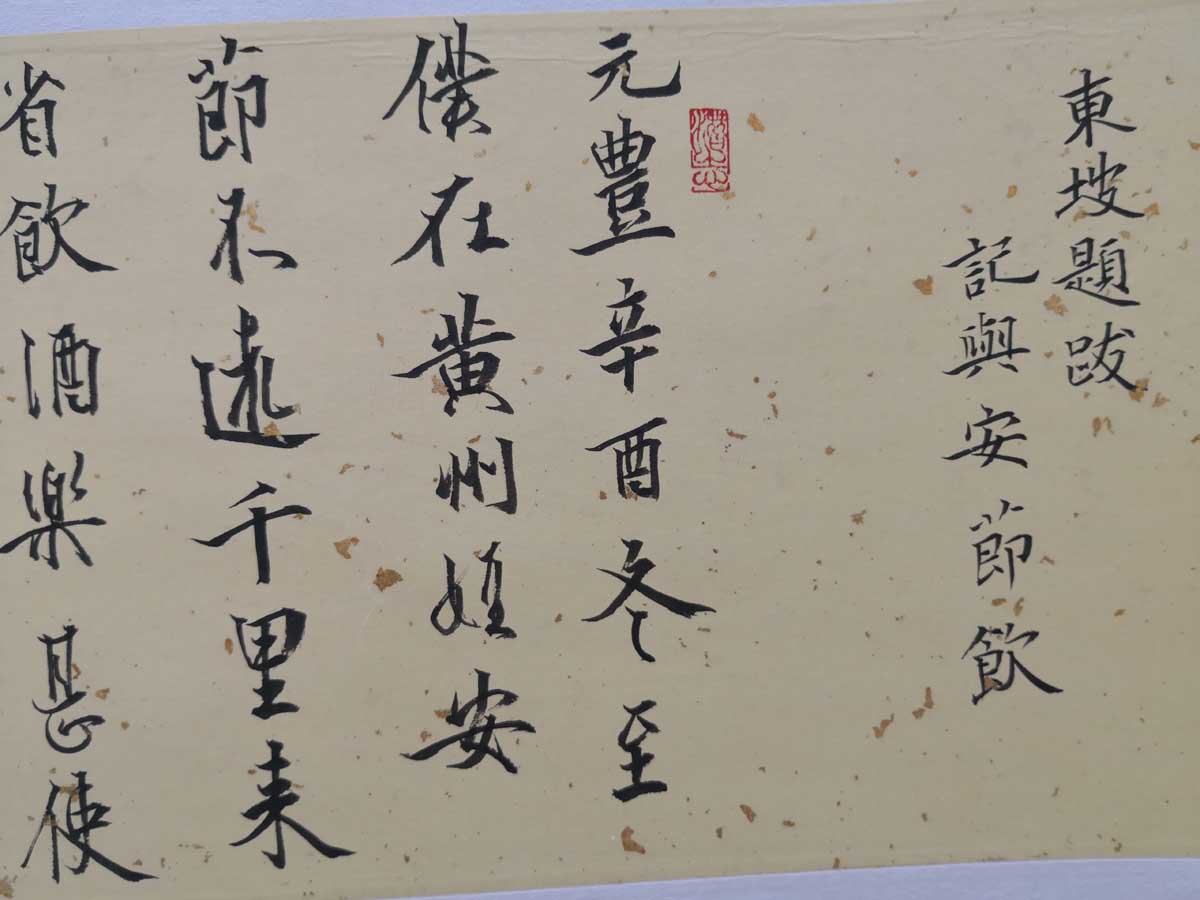 東坡題跋
記與安節飲
元豐辛酉冬至
僕在黄州姪安
節不遠千里来
省飲酒樂甚使